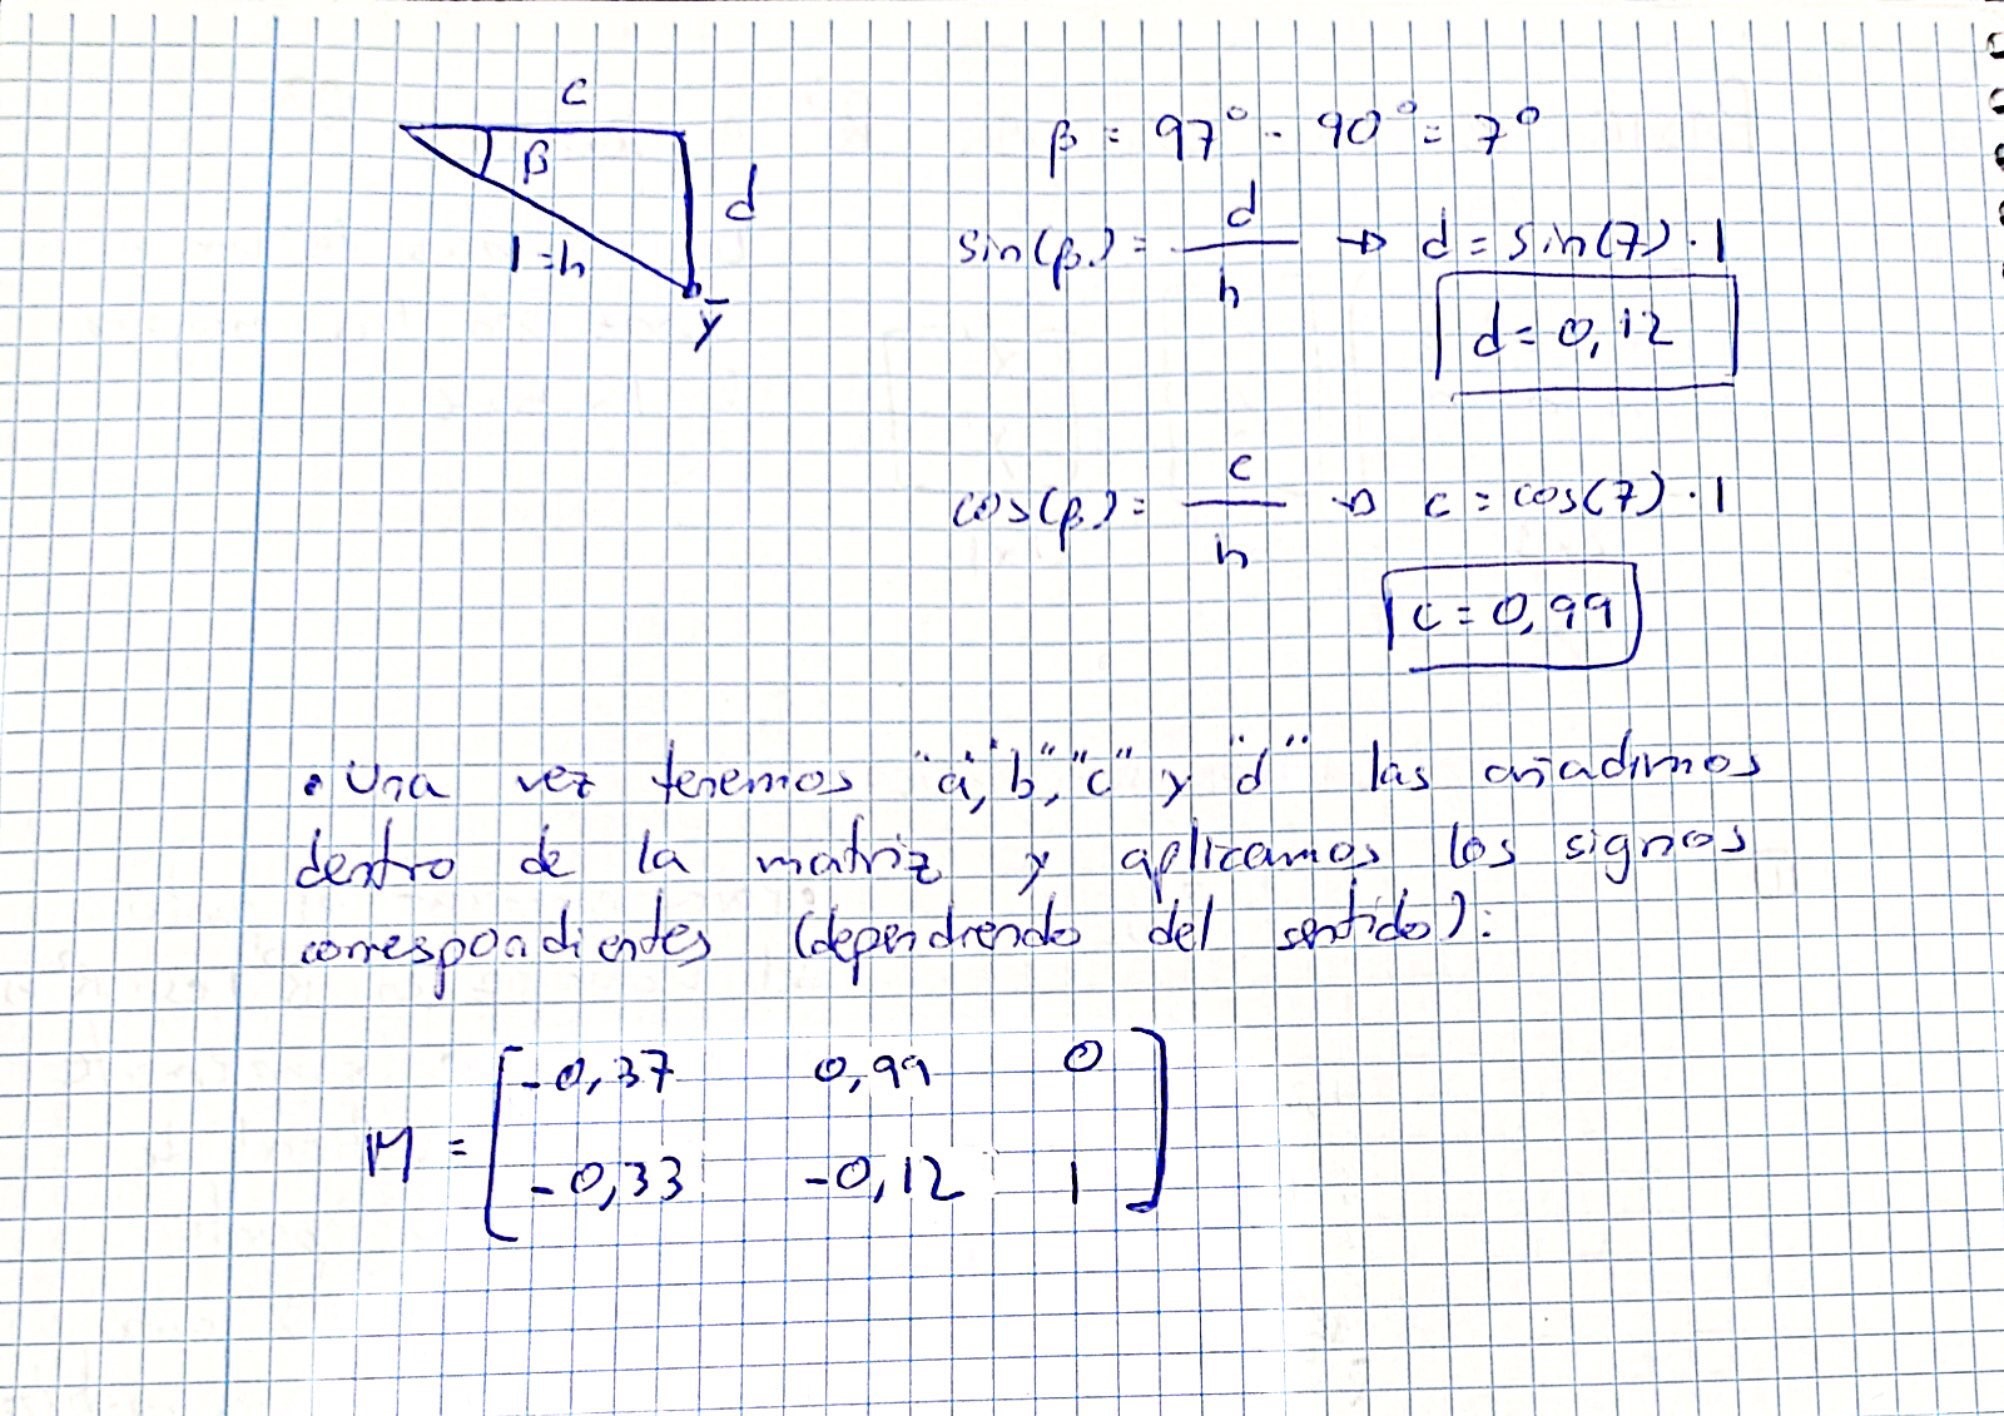 c
β
d
1=h
Y̅
β = 97° - 90° = 7°
sin(β) = d/h → d = sin(7) · 1
d = 0,12
cos(β) = c/h → c = cos(7) · 1
c = 0,99
• Una vez tenemos "a", "b", "c" y "d" las añadimos
dentro de la matriz y aplicamos los signos
correspondientes (dependiendo del sentido):
M = [ -0,37 0,99 0
-0,33 -0,12 1 ]